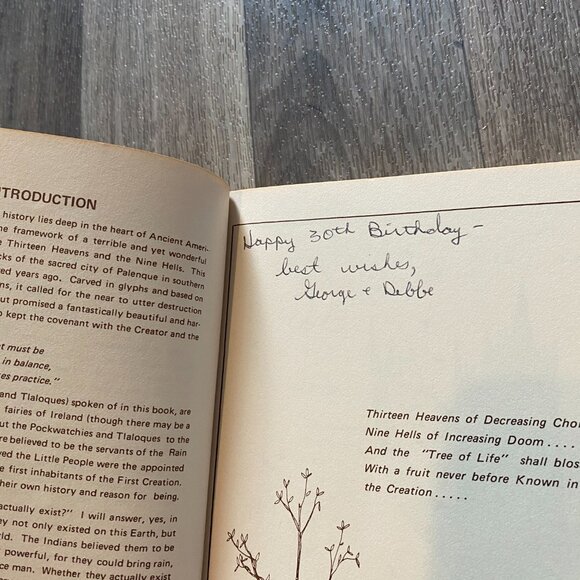 INTRODUCTION
history lies deep in the heart of Ancient Ameri-
he framework of a terrible and yet wonderful
e Thirteen Heavens and the Nine Hells. This
cks of the sacred city of Palenque in southern
red years ago. Carved in glyphs and based on
ns, it called for the near to utter destruction
but promised a fantastically beautiful and har-
o kept the covenant with the Creator and the
t must be
in balance,
es practice."
and Tlaloques) spoken of in this book, are
fairies of Ireland (though there may be a
but the Pockwatchies and Tlaloques to the
re believed to be the servants of the Rain
ved the Little People were the appointed
e first inhabitants of the First Creation.
their own history and reason for being.
actually exist?" I will answer, yes, in
ey not only existed on this Earth, but
rld. The Indians believed them to be
powerful, for they could bring rain,
ce man. Whether they actually exist
Happy 30th Birthday -
best wishes,
George + Debbe
Thirteen Heavens of Decreasing Choi
Nine Hells of Increasing Doom ....
And the "Tree of Life" shall blos
With a fruit never before Known in
the Creation .....